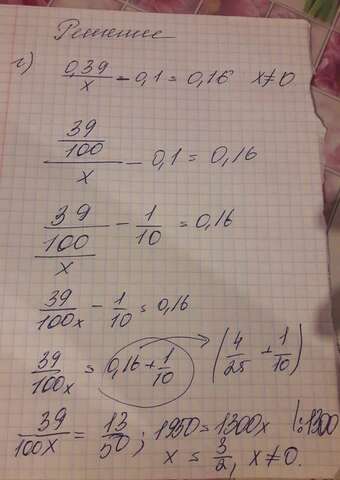 Решение
г) 0,39/x - 0,1 = 0,16 x≠0
(39/100)/x - 0,1 = 0,16
(39/100)/x - 1/10 = 0,16
39/100x - 1/10 = 0,16
39/100x = 0,16 + 1/10 (4/25 + 1/10)
39/100x = 13/50 ; 1950 = 1300x |:1300
x = 3/2, x≠0.